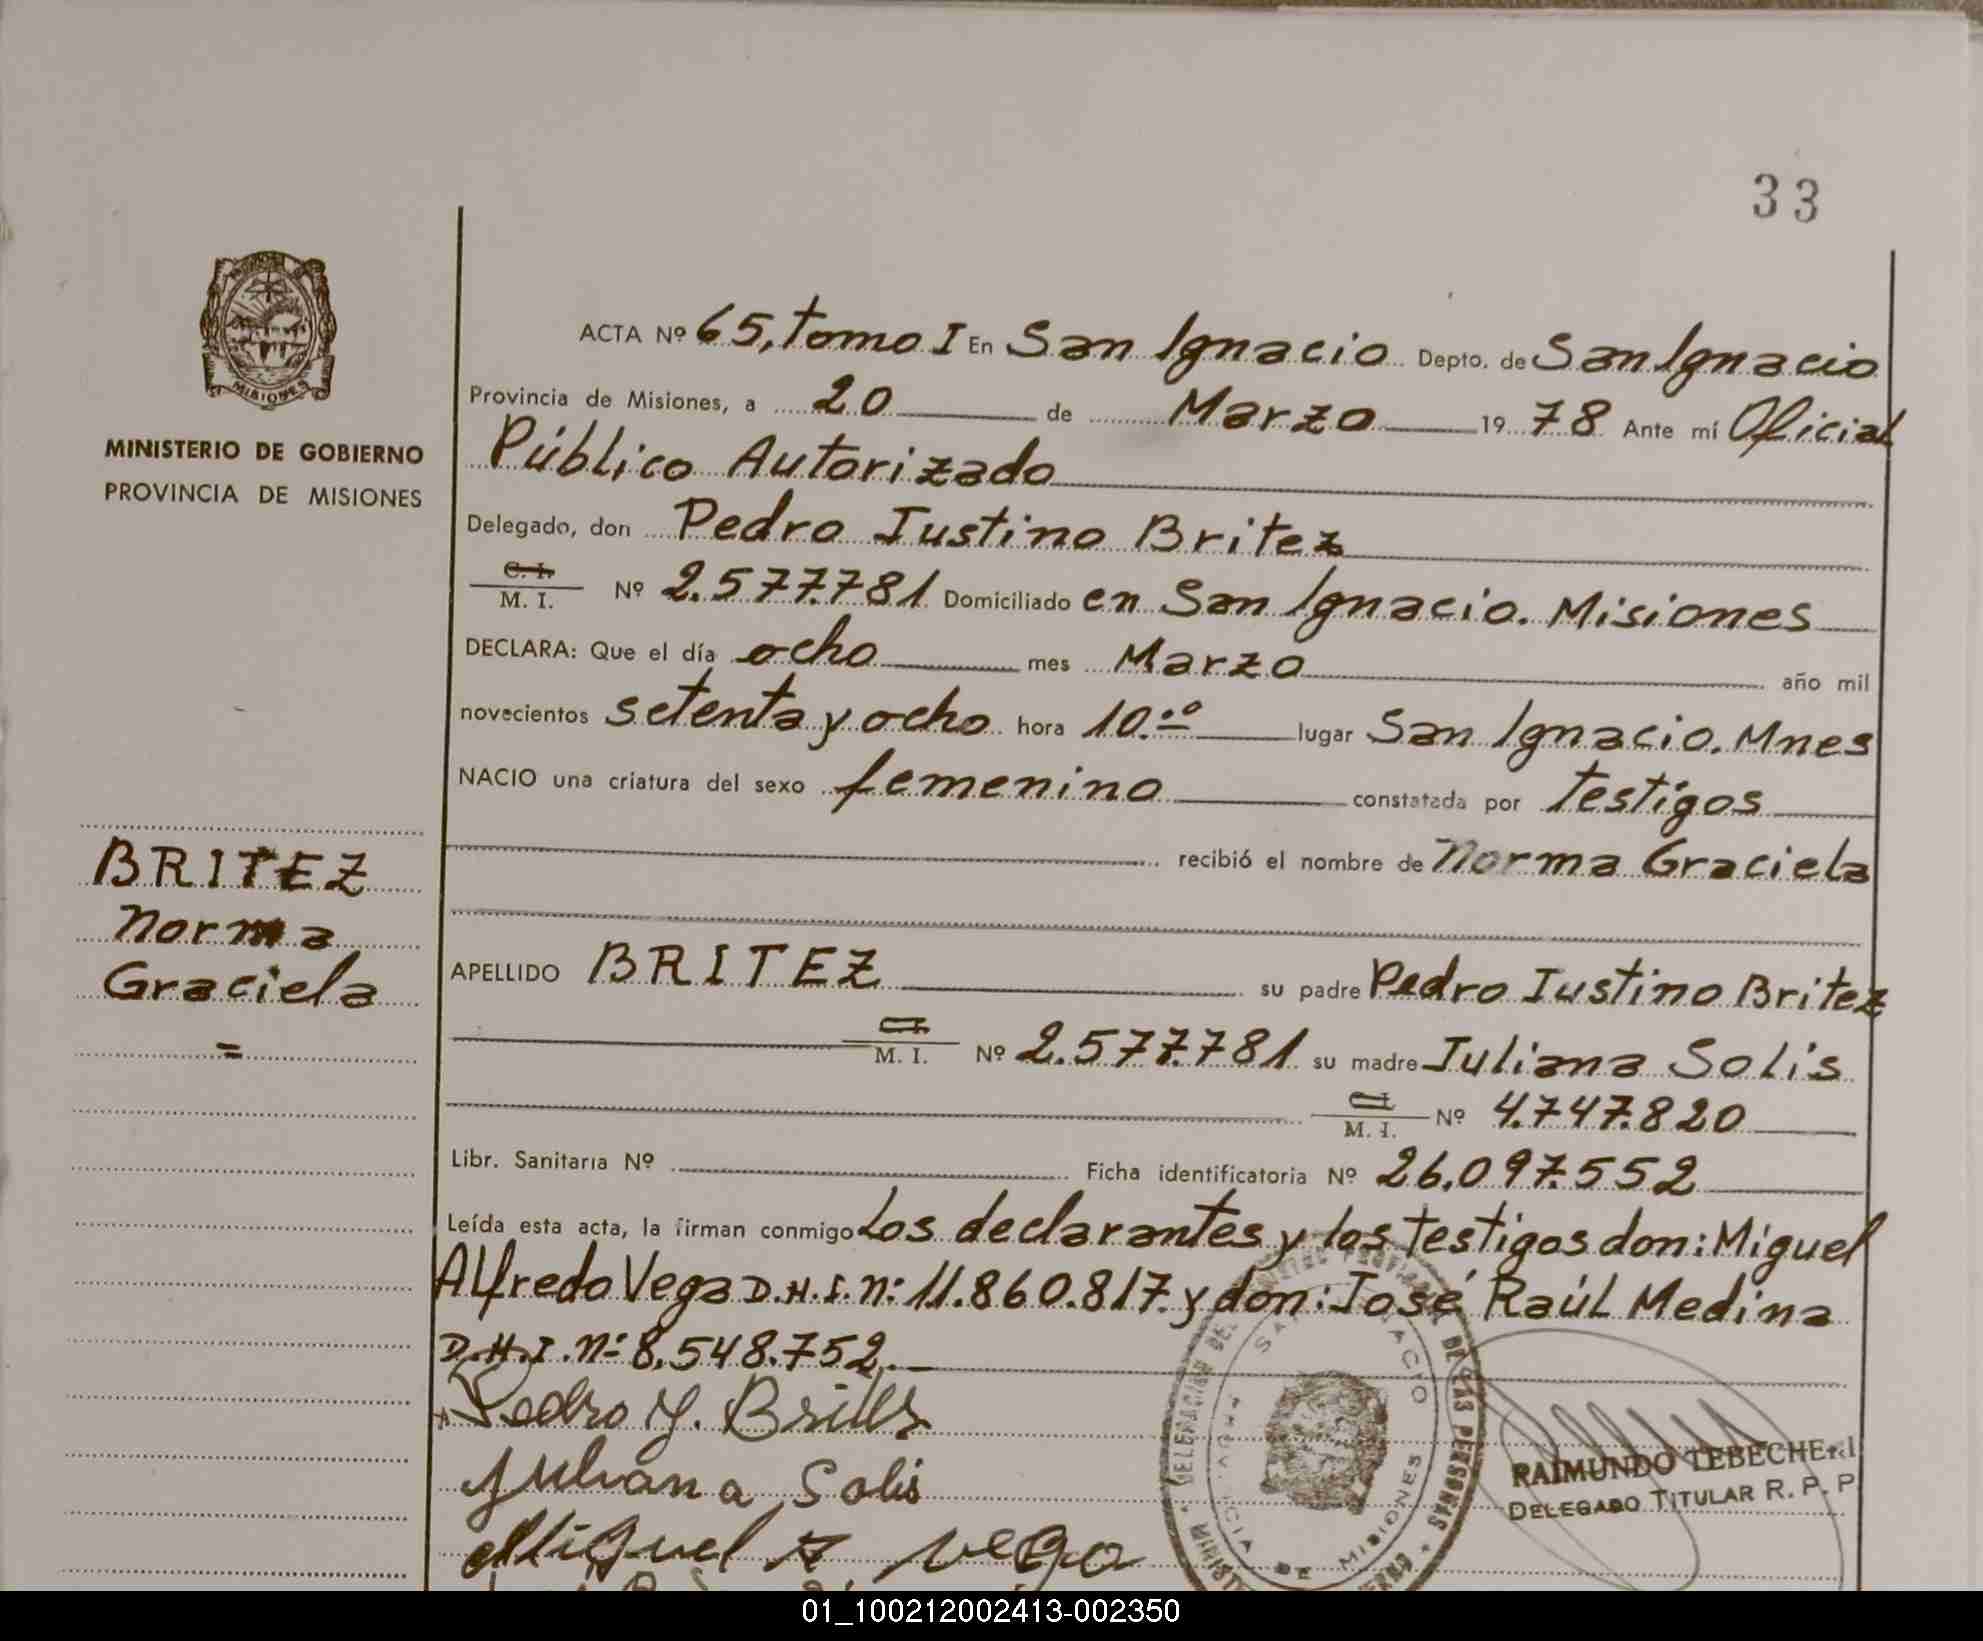 33
ACTA Nº 65, tomo I En San Ignacio Depto. de San Ignacio
Provincia de Misiones, a 20 de Marzo 19 78 Ante mí Oficial
Público Autorizado
Delegado, don Pedro Justino Britez
C. I.
M. I. Nº 2.577.781 Domiciliado en San Ignacio. Misiones
DECLARA: Que el día ocho mes Marzo año mil
novecientos setenta y ocho hora 10.ºº lugar San Ignacio. Mnes
NACIO una criatura del sexo femenino constatada por testigos
recibió el nombre de Norma Graciela
APELLIDO BRITEZ su padre Pedro Justino Britez
C.I.
M. I. Nº 2.577.781 su madre Juliana Solis
C.I.
M. I. Nº 4.747.820
Libr. Sanitaria Nº Ficha identificatoria Nº 26.097.552
Leída esta acta, la firman conmigo Los declarantes y los testigos don: Miguel
Alfredo Vega D.N.I. n: 11.860.817. y don: José Raúl Medina
D.N.I. n: 8.548.752.
Pedro J. Britez
Juliana Solis
Miguel A. Vega
MISIONES
MINISTERIO DE GOBIERNO
PROVINCIA DE MISIONES
BRITEZ
Norma
Graciela
=
DE LAS PERSONAS
DE MISIONES
RAIMUNDO TEBECHERI
DELEGADO TITULAR R. P. P
01_100212002413-002350